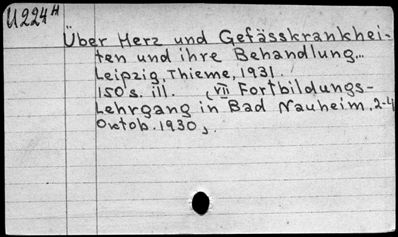 U224H
Über Herz und Gefässkrankhei-
ten und ihre Behandlung...
Leipzig, Thieme, 1931.
150 s. ill. (VII Fortbildungs-
Lehrgang in Bad Nauheim, 2-4
Oktob. 1930).